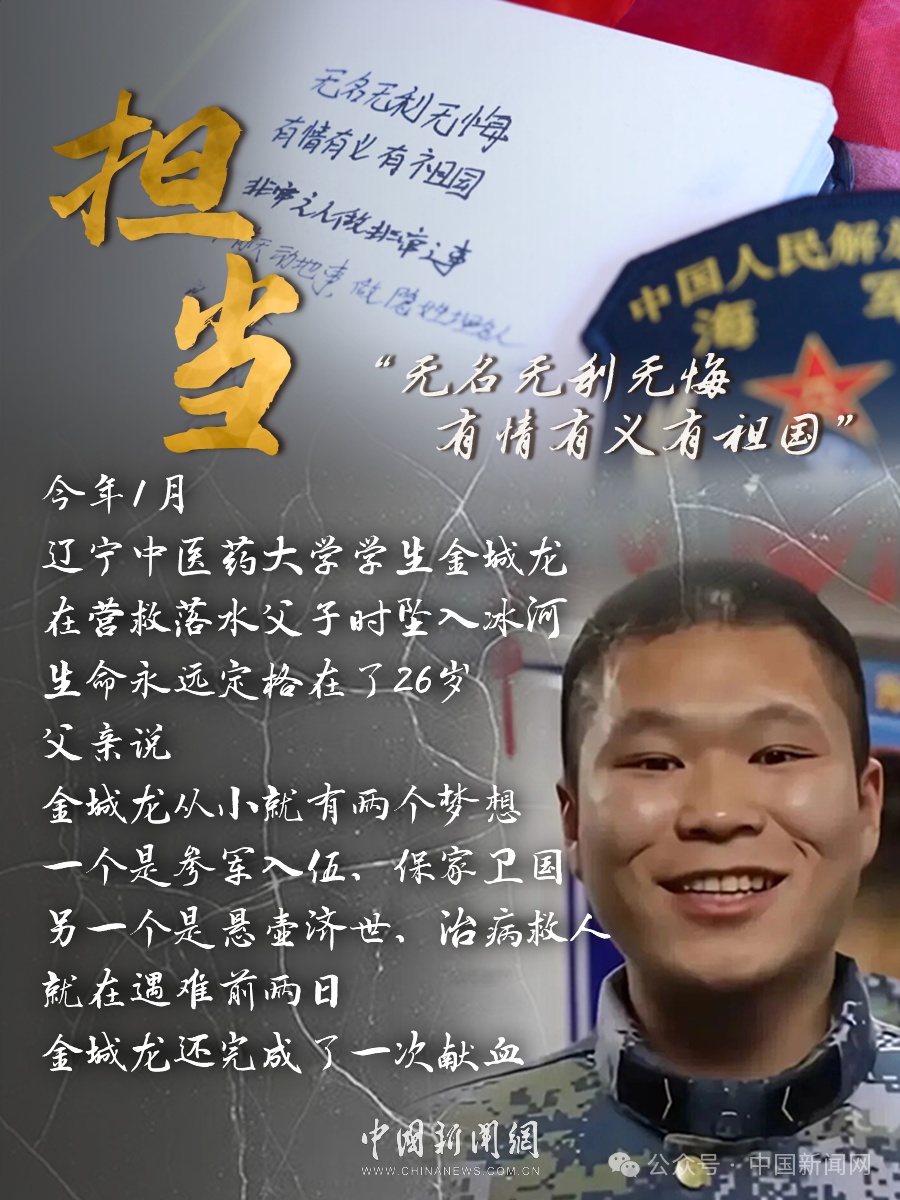 无名无利无悔
有情有义有祖国
非常之人做非常之事
动地事,做隐姓埋名人
担
当
中国人民解放
海军
“无名无利无悔
有情有义有祖国”
今年1月
辽宁中医药大学学生金城龙
在营救落水父子时坠入冰河
生命永远定格在了26岁
父亲说
金城龙从小就有两个梦想
一个是参军入伍、保家卫国
另一个是悬壶济世、治病救人
就在遇难前两日
金城龙还完成了一次献血
中國新聞網
WWW.CHINANEWS.COM.CN
公众号·中国新闻网